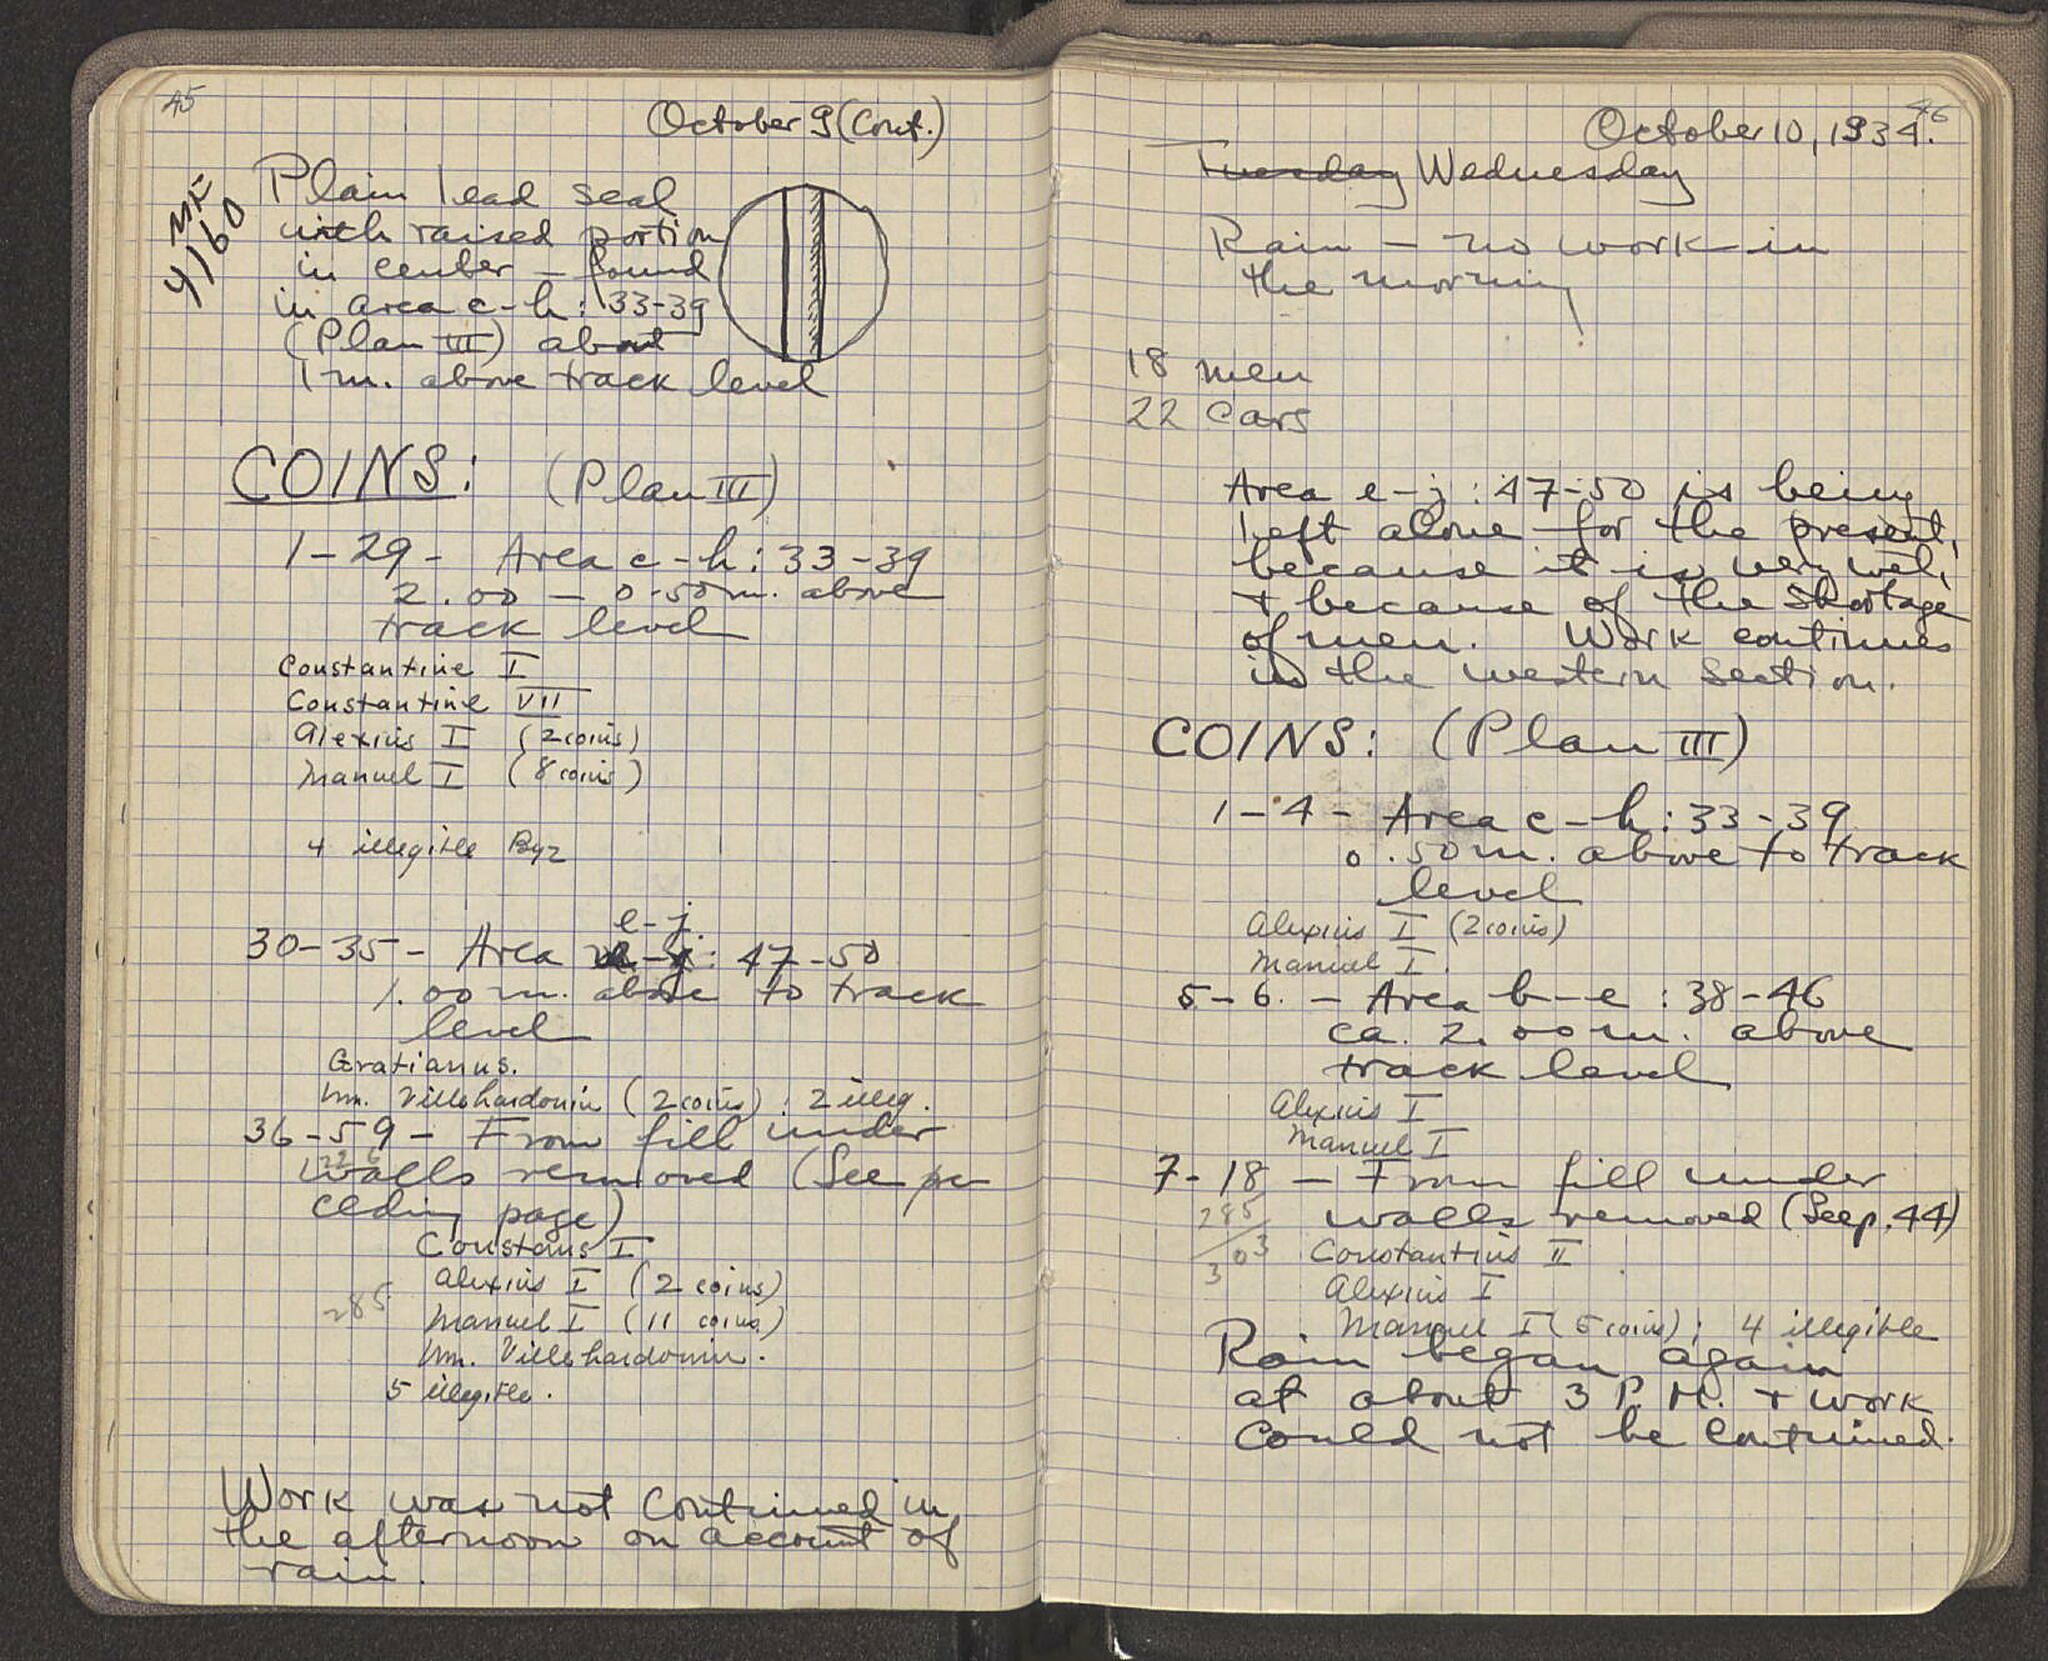 45
October 9 (Cont.)
MF
4160
Plain lead seal
with raised portion
in center – found
in area c-h: 33-39
(Plan III) about
1 m. above track level
COINS: (Plan III)
1-29 - Area c-h: 33-39
2.00 – 0.50 m. above
track level
Constantine I
Constantine VII
Alexius I (2 coins)
Manuel I (8 coins)
4 illegible Byz
e-j
30-35 - Area : 47-50
1.00 m. above to track
level
Gratianus.
Wm. Villehardouin (2 coins) : 2 illeg.
36-59 - From fill under
walls removed (See pre
ceding page)
Constans I
Alexius I (2 coins)
285
Manuel I (11 coins)
Wm. Villehardouin.
5 illegible.
Work was not continued in
the afternoon on account of
rain.
46
October 10, 1934.
Tuesday Wednesday
Rain – no work in
the morning
18 men
22 cars
Area e-j: 47-50 is being
left alone for the present,
because it is very wet,
+ because of the shortage
of men. Work continues
in the western section.
COINS: (Plan III)
1-4 - Area c-h: 33-39
0.50 m. above to track
level
Alexius I (2 coins)
Manuel I.
5-6. – Area b-e : 38-46
ca. 2.00 m. above
track level
Alexius I
Manuel I
7-18 – From fill under
285
walls removed (See p. 44)
303
Constantius II
Alexius I
Manuel I (5 coins); 4 illegible
Rain began again
at about 3 P.M. + work
could not be continued.